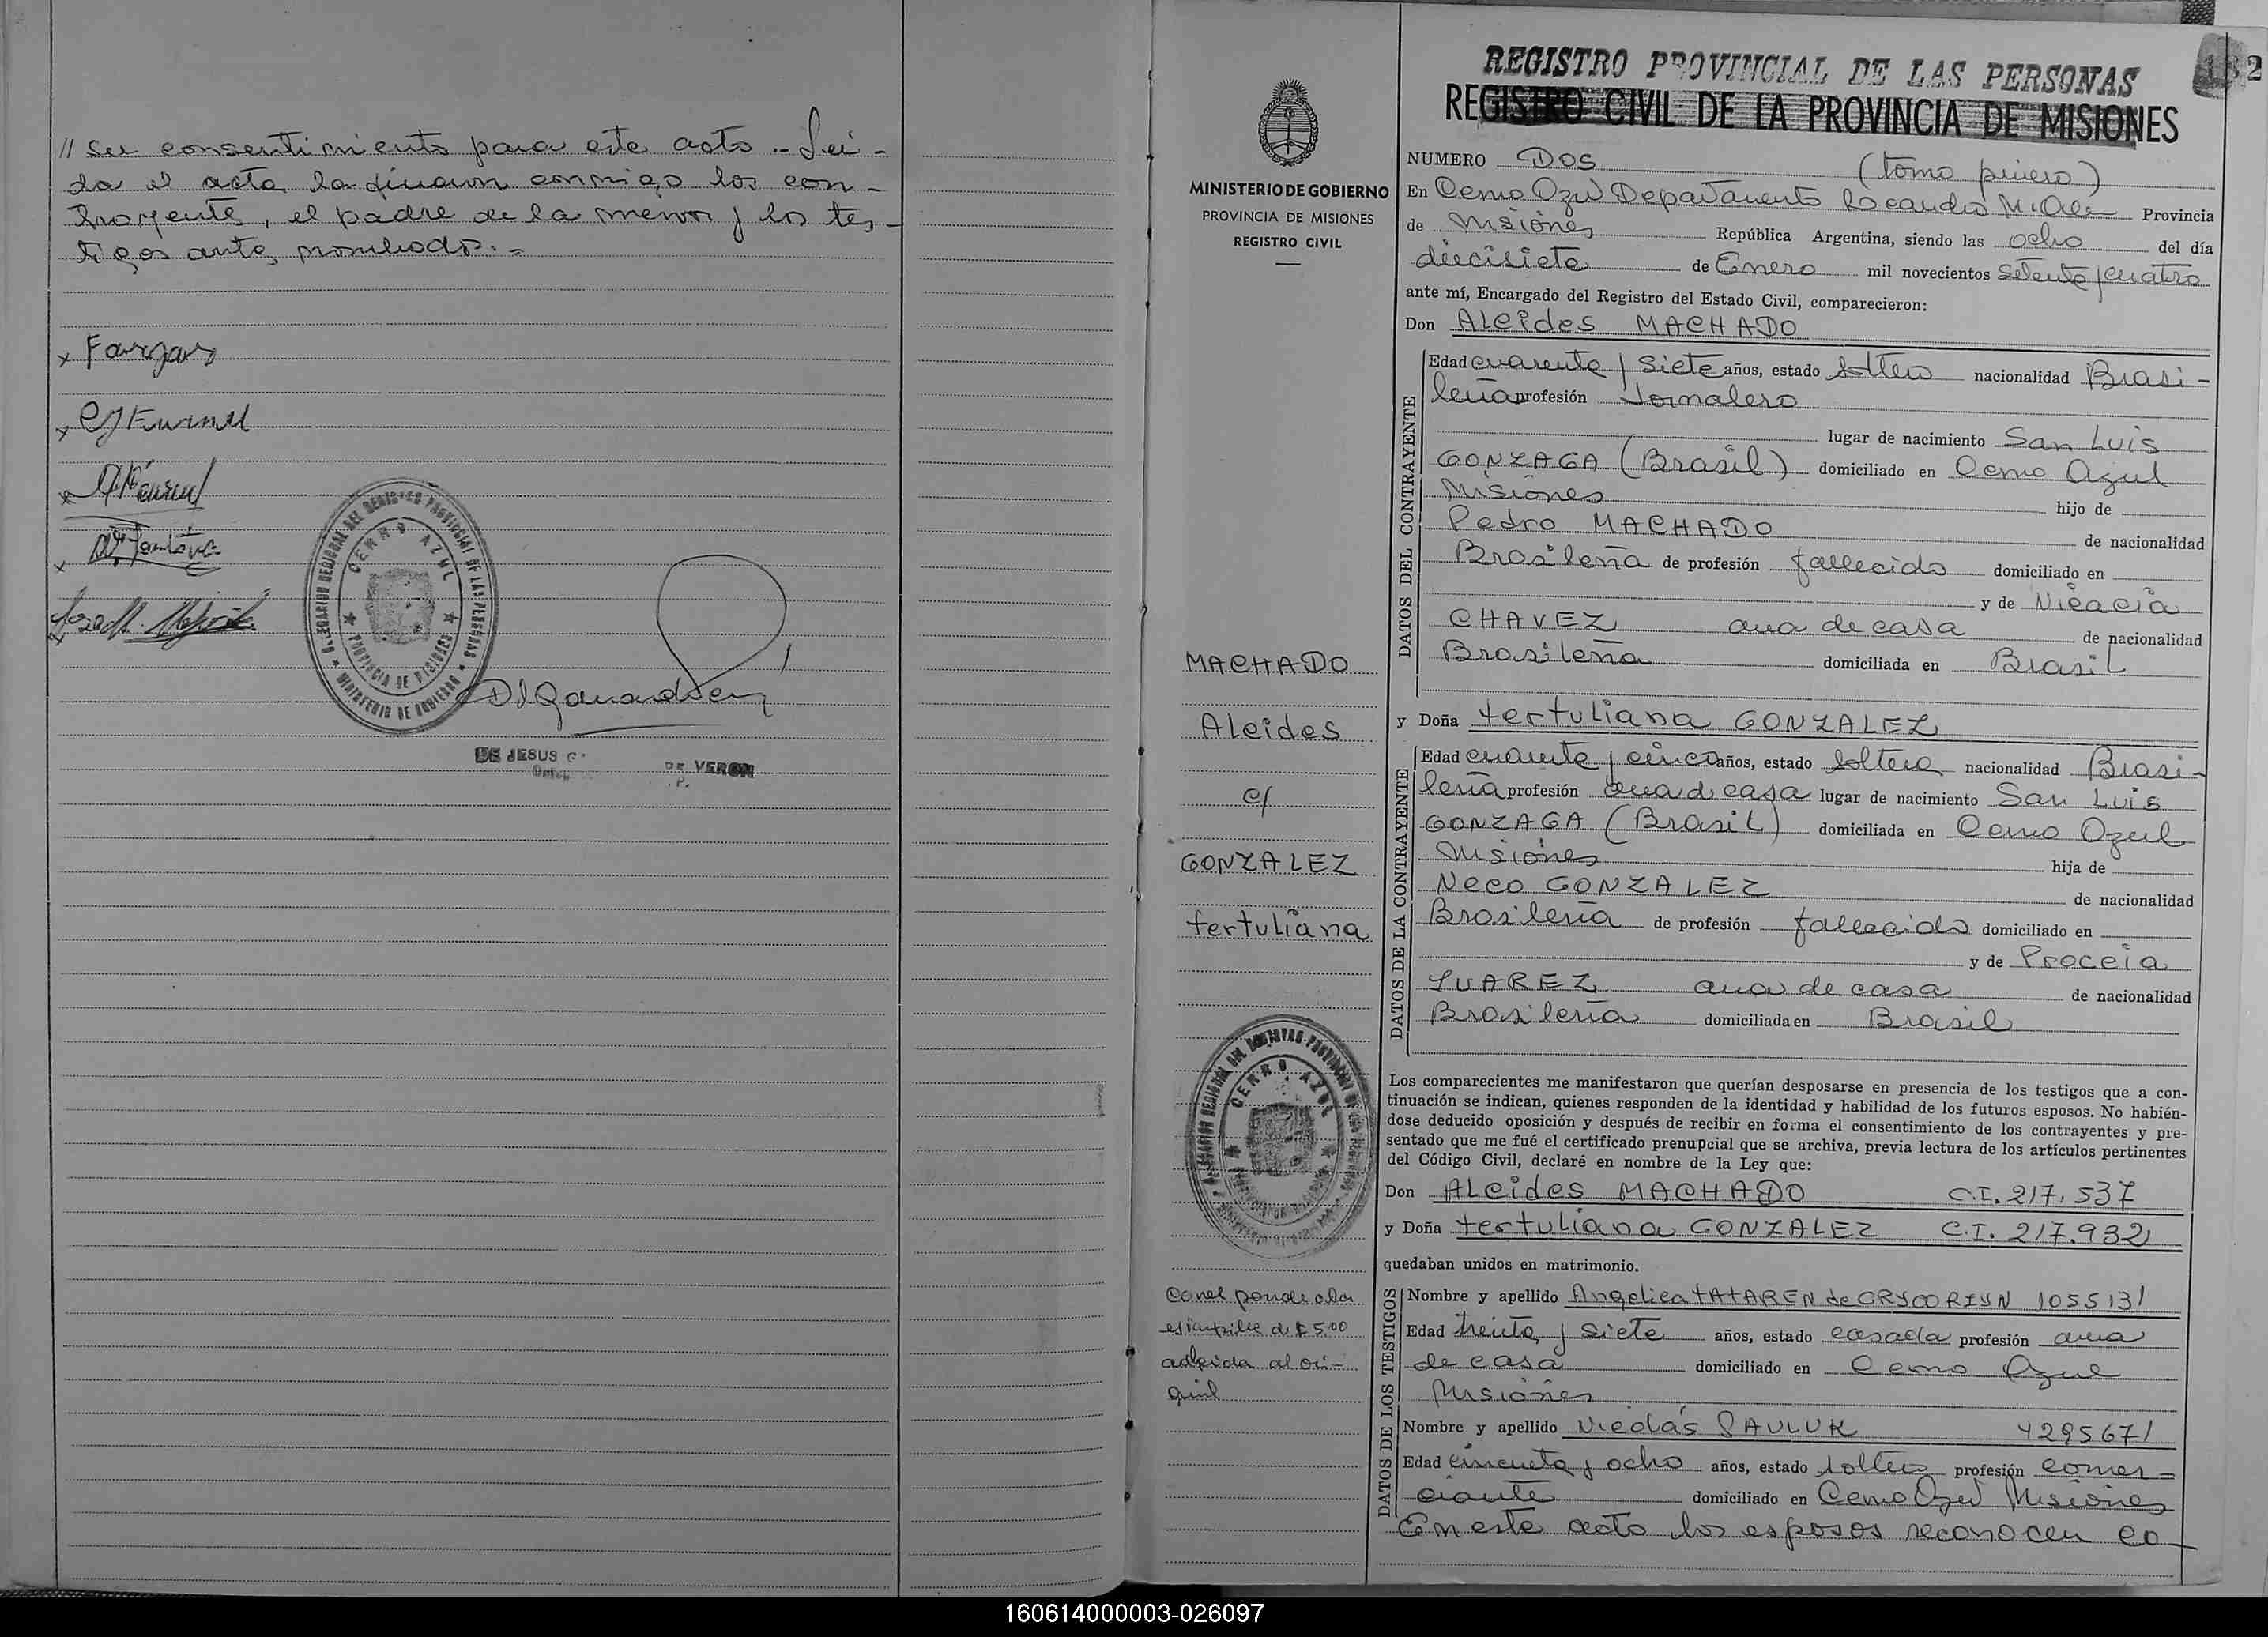 // su consentimiento para este acto.- Leí-
da el acta la firman conmigo los con-
trayente, el padre de la menor y los tes-
tigos ante, nombrado.=
CERRO AZUL
PROVINCIA DE MISIONES
MINISTERIO DE GOBIERNO
DELEGACION REGIONAL DEL REGISTRO PROVINCIAL DE LAS PERSONAS
DE JESUS
DE VERON
182
REGISTRO PROVINCIAL DE LAS PERSONAS
REGISTRO CIVIL DE LA PROVINCIA DE MISIONES
MINISTERIO DE GOBIERNO
PROVINCIA DE MISIONES
REGISTRO CIVIL
MACHADO
Alcides
c/
GONZALEZ
tertuliana
CERRO AZUL
estampilla de $ 5,00
NUMERO DOS (tomo primero)
En Cerro Azul Departamento Leandro N. Alem Provincia
de Misiones República Argentina, siendo las ocho del día
diecisiete de Enero mil novecientos setenta y cuatro
ante mí, Encargado del Registro del Estado Civil, comparecieron:
Don ALcides MACHADO
DATOS DEL CONTRAYENTE
Edad cuarenta y siete años, estado soltero nacionalidad Brasi-
leña profesión Jornalero
lugar de nacimiento San Luis
GONZAGA (Brasil) domiciliado en Cerro Azul
Misiones hijo de
Pedro MACHADO de nacionalidad
Brasileña de profesión fallecido domiciliado en
y de Nicacia
CHAVEZ ama de casa de nacionalidad
Brasileña domiciliada en Brasil
y Doña tertuliana GONZALEZ
DATOS DE LA CONTRAYENTE
Edad cuarenta y cinco años, estado soltera nacionalidad Brasi-
leña profesión ama de casa lugar de nacimiento San Luis
GONZAGA (Brasil) domiciliada en Cerro Azul
Misiones hija de
Neco GONZALEZ de nacionalidad
Brasileña de profesión fallecido domiciliado en
y de Proceia
SUAREZ ama de casa de nacionalidad
Brasileña domiciliada en Brasil
Los comparecientes me manifestaron que querían desposarse en presencia de los testigos que a con-
tinuación se indican, quienes responden de la identidad y habilidad de los futuros esposos. No habién-
dose deducido oposición y después de recibir en forma el consentimiento de los contrayentes y pre-
sentado que me fué el certificado prenupcial que se archiva, previa lectura de los artículos pertinentes
del Código Civil, declaré en nombre de la Ley que:
Don ALcides MACHADO C.I. 217.537
y Doña tertuliana GONZALEZ C.I. 217.932
quedaban unidos en matrimonio.
DATOS DE LOS TESTIGOS
Nombre y apellido Angelica tAtAREN de GRYCORIYN 1055131
Edad treinta y siete años, estado casada profesión ama
de casa domiciliado en Cerro Azul
Misiones
Nombre y apellido Nicolás PAULUK 4295671
Edad cincuenta y ocho años, estado soltero profesión comer-
ciante domiciliado en Cerro Azul Misiones
En este acto los esposos reconocen co-
160614000003-026097